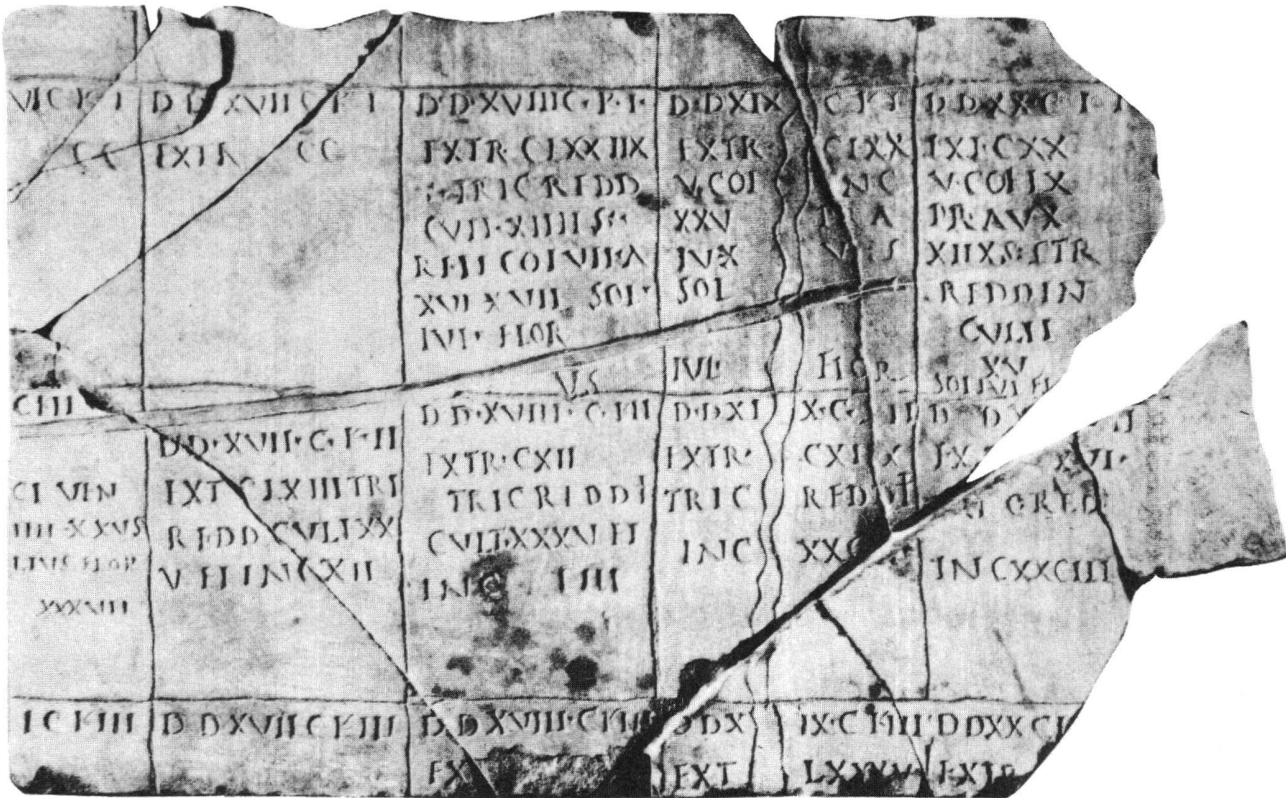 VI C K I
CC
D D XVII C K I
EXTR CC
D·D·XVIII C·K·I·
EXTR·CLXXIIX
TRIC REDD
CVLT·XIIII S
RELI COL VII·A
XVI XVII SOL·
IVL· FLOR
V S
D·D XIX C K I
EXTR· CLXX
V·COL NC
XXV A
IV·X V S
SOL
IVL· FLOR
D D XX C
EXT·CXX
V·COL IX
PR·A V X
XIIXS TR
REDD IN
CVLTI
XV
SOL IVL FL
C K II
CI VEN
IIII XXVS
LIVS FLOR
XXXVIII
D D·XVII·C·K·II
EXT CLXIII TRI
REDD CVLT XX
V ET INC XII
D D·XVIII·C·K II
EXTR·CXII
TRIC REDDI
CVLT·XXXV ET
INC IIII
D·D XIX·C· II
EXTR·
TRIC REDDI
INC
D D
XVI·
RED
INC XXCIII
I C K III
D D XVII C K III
D D XVIII·C K III
EX
D D X IX·C K III
EXT LXXXV
D D XX C K
EXTR